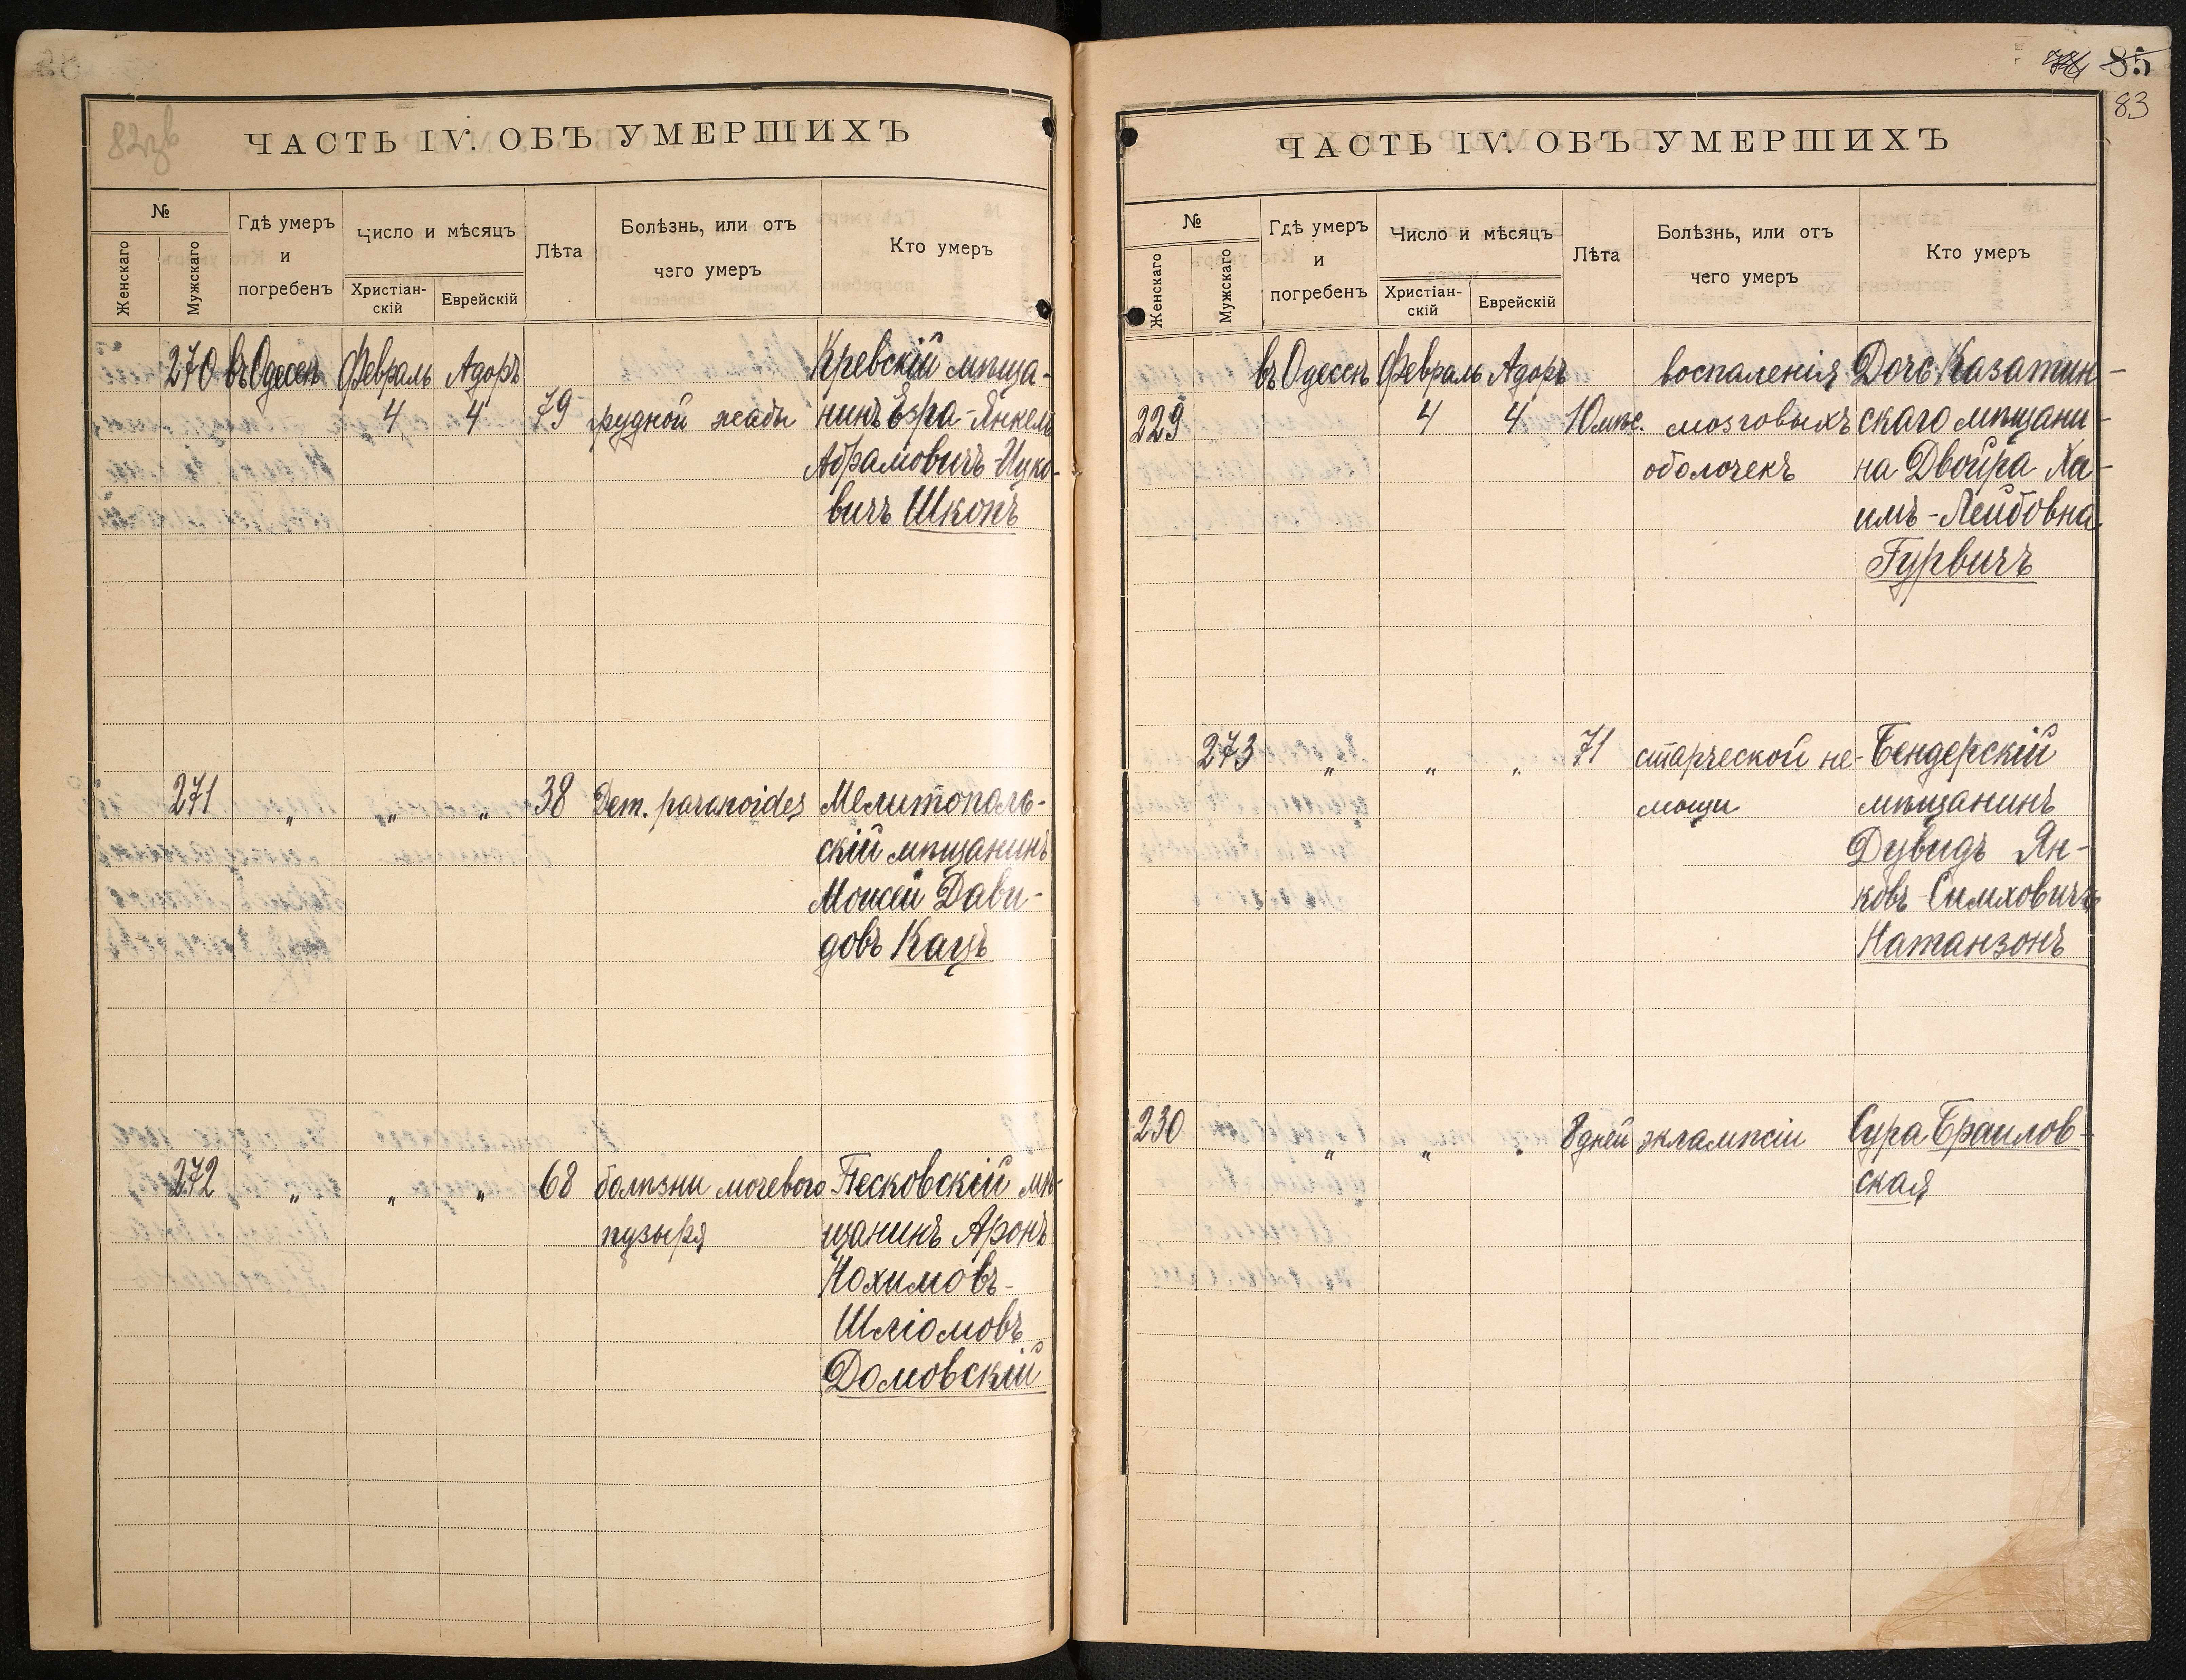 ЧАСТЬ IV. ОБЪ УМЕРШИХЪ
№
Женскаго
Мужскаго
Гдѣ умеръ
и
погребенъ
Число и мѣсяцъ
Христіан-
скій
Еврейскій
Лѣта
Болѣзнь, или отъ
чего умеръ
Кто умеръ
270 въ Одессѣ Февраль Адоръ Кревскій мѣща-
4 4 79 грудной жабы нинъ Езра-Янкель
Абрамовичъ-Ицко-
вичъ Шконъ
271 „ „ „ 38 Dem. paranoides Мелитополь-
скій мѣщанинъ
Моисей Дави-
довъ Кацъ
272 „ „ „ 68 болѣзни мочевого Песковскій мѣ-
пузыря щанинъ Аронъ
Нохимовъ-
Шліомовъ
Домовскій
85
83
ЧАСТЬ IV. ОБЪ УМЕРШИХЪ
№
Женскаго
Мужскаго
Гдѣ умеръ
и
погребенъ
Число и мѣсяцъ
Христіан-
скій
Еврейскій
Лѣта
Болѣзнь, или отъ
чего умеръ
Кто умеръ
въ Одессѣ Февраль Адоръ воспаленія Дочь Казатин-
229 4 4 10 мѣс. мозговыхъ скаго мѣщани-
оболочекъ на Двойра Ха-
имъ-Лейбовна
Гурвичъ
273 „ „ „ 71 старческой не- Бендерскій
мощи мѣщанинъ
Дувидъ Ян-
ковъ Симховичъ
Натанзонъ
230 „ „ „ 8 дней эклампсіи Сура Браилов-
ская